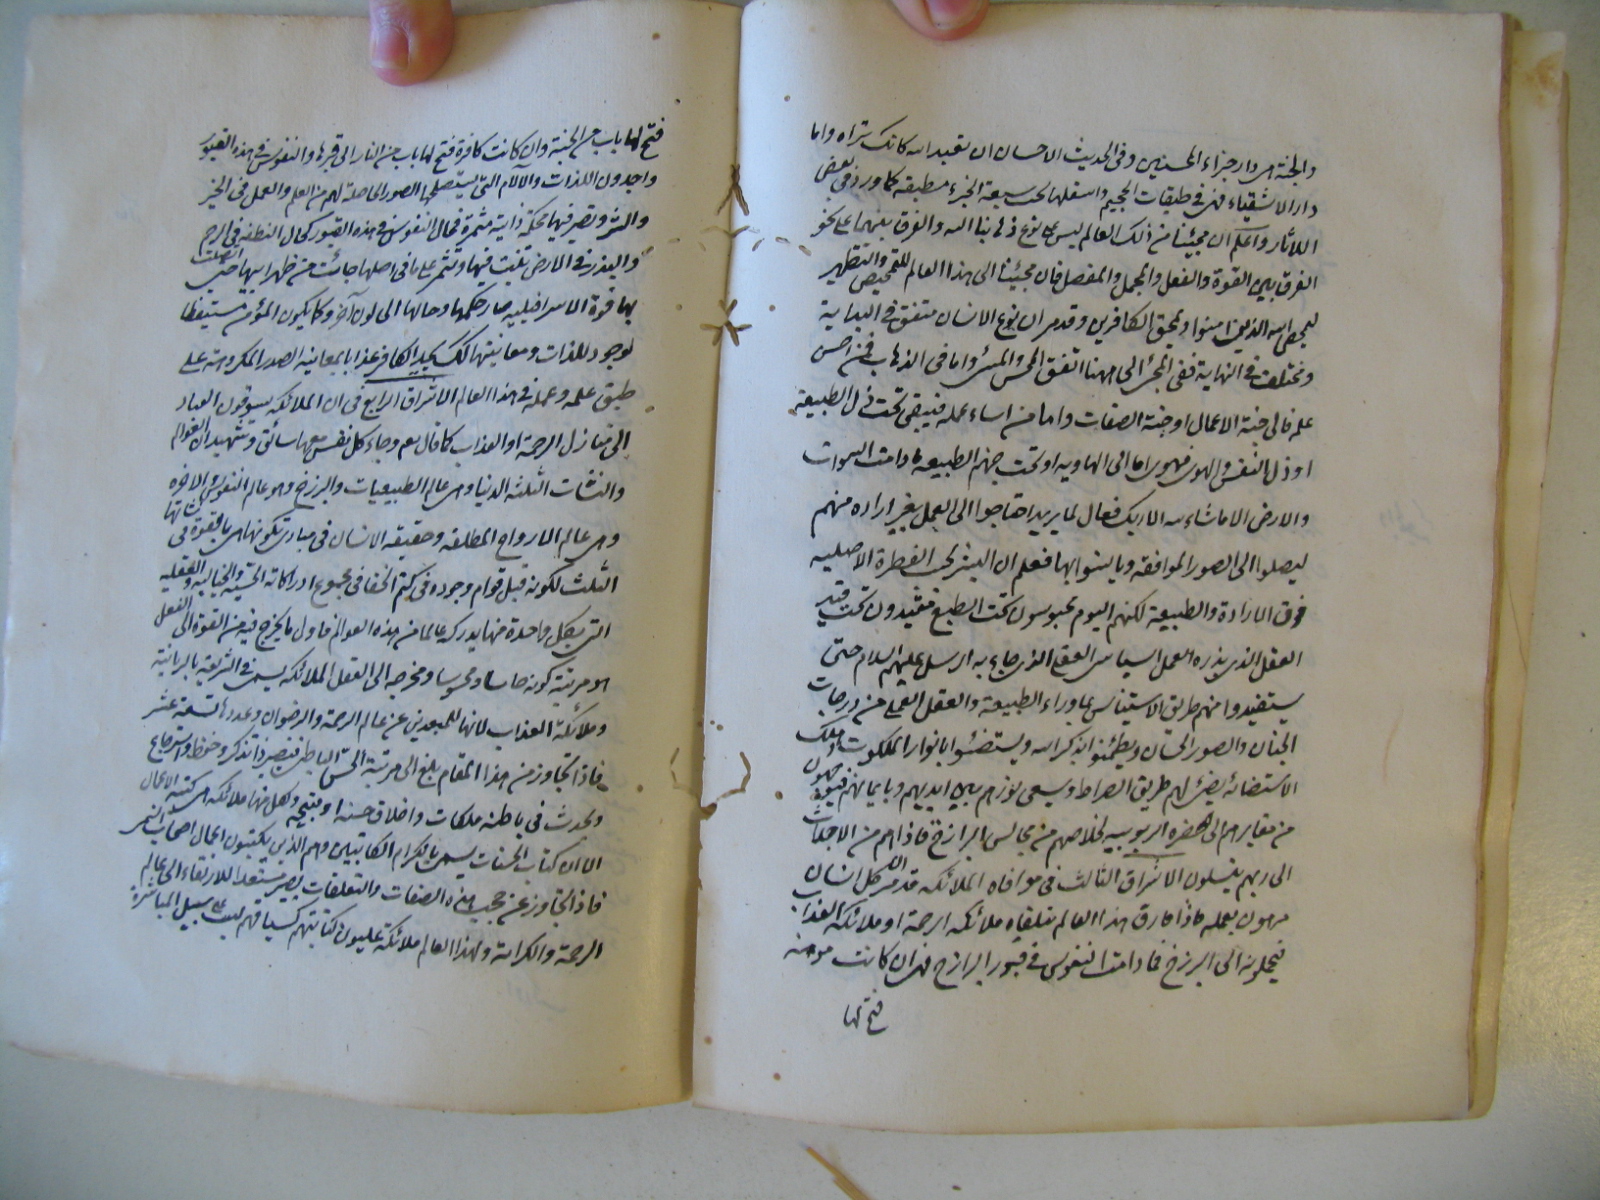 والجنة هى دار جزاء المحسنين وفى الحديث الاحسان ان تعبد الله كانك تراه واما
دار الاشقياء فهى فى طبقات الجحيم واسفلها تحت سبعة الجزء مطبقه كما ورد فى بعض
الاثار واعلم ان مجيئنا من ذلك العالم ليس على نوع ذهابنا اليه والفرق بينهما على نحو
الفرق بين القوة والفعل والمجمل والمفصل فان مجيئنا الى هذا العالم للتمحيص والتطهير
ليمحص الله الذين امنوا ويمحق الكافرين وقد مر ان نوع الانسان متفق فى البداية
ومختلف فى النهاية ففى المجئ الى ههنا اتفق المحسن والمسئ واما فى الذهاب فمن احسن
عمله فالى جنة الاعمال او جنة الصفات واما من اساء عمله فيبقى تحت ذل الطبيعة
او ذل النفس والهوى فهوى اما الى الهاويه او تحت جهنم الطبيعه ما دامت السموات
والارض الا ما شاء الله ان ربك فعال لما يريد احتاجوا الى العمل بغير اراده منهم
ليصلوا الى الصور الموافقه ويانسوا بها فعلم ان البشر بحسب الفطرة الاصليه
فوق الارادة والطبيعة لكنهم اليوم محبوسون تحت الطبع مقيدون تحت قيد
العقل الذى بذره العمل السياسى العقلى الذى جاء به الرسل عليهم السلام حتى
يستفيدوا منهم طريق الاستيناس بما وراء الطبيعة والعقل العملى من درجات
الجنان والصور الحسان ويطمئنوا بذكر الله ويستضيئوا بانوار الملكوت وتلك
الاستضائه يضئ لهم طريق الصراط ويسعى نورهم بين ايديهم وبايمانهم فيتوجهون
من مقابرهم الى الحضره الربوبيه لخلاصهم من مجالس البرازخ فاذا هم من الاجداث
الى ربهم ينسلون الاشراق الثالث فى موافاه الملائكه قد مر ان كل انسان
مرهون بعمله فاذا فارق هذا العالم يتلقاه ملائكه الرحمة او ملائكه العذاب
فيحملونه الى البرزخ فما دامت النفوس فى قبور البرازخ فهى ان كانت مومنه
فتح لها
فتح لها باب من الجنة وان كانت كافرة فتح لها باب من النار الى قبرها والنفوس فى هذه القبور
واجدون اللذات والآلام التى يستصحبها الصور الحاصلة لهم من العلم والعمل فى الخير
والشر وتصير فيها محكمة ذاتية مثمرة فحال النفوس فى هذه القبور كحال النطفه فى الرحم
والبذر فى الارض تنبت فيها وتثمر على ما فى اصلها جائت من ظهر ابيها حتى اتصلت
بها قوة الاسرافيليه صار حكمها وحالها الى لون آخر وكما يكون المؤمن مستيقظا
لوجود للذات ومعاينتها كذلك يجد الكافر عذابا بمعاينه الصور المكروهة على
طبق علمه وعمله فى هذا العالم الاشراق الرابع فى ان الملائكه يسوقون العباد
الى منازل الرحمة او العذاب كما قال تعم وجاءت كل نفس معها سائق وشهيد ان العوالم
والنشات الثلثه الدنيا وهى عالم الطبيعيات والبرزخ وهو عالم النفوس والاخره
وهى عالم الارواح المطلقه وحقيقه الانسان فى مبادى تكونها هى بالقوة فى نشاتها
الثلث لكونه قبل قوام وجوده فى كتم الخفا فى مجموع ادراكاته الحسية والخياليه والعقليه
التى بكل واحدة منها يدركه عالما من هذه العوالم فاول ما يخرج فيه من القوة الى الفعل
هو مرتبة كونه حاسا ومحسوسا ومخرجه الى الفعل الملائكه يسمى فى الشريعه بالزبانية
وملائكة العذاب لانها المبعدين عن عالم الرحمة والرضوان وعددها تسعة عشر
فاذا تجاوز من هذا المقام بلغ الى مرتبة الحس الباطن فيصير ذا تذكر وحفظ واسترجاع
ويحدث فى باطنه ملكات واخلاق حسنه او قبيحه ولكل منها ملائكه هى كتبة الاعمال
الا ان كتاب الحسنات يسمى بالكرام الكاتبين وهم الذين يكتبون اعمال اصحاب اليمين
فاذا تجاوز عن حجب هذه الصفات والتعلقات يصير مستعدا للارتقاء الى عالم
الرحمة والكرامة ولهذا العالم ملائكة عليون وكتابتهم كسياقهم ليست على سبيل المباشرة